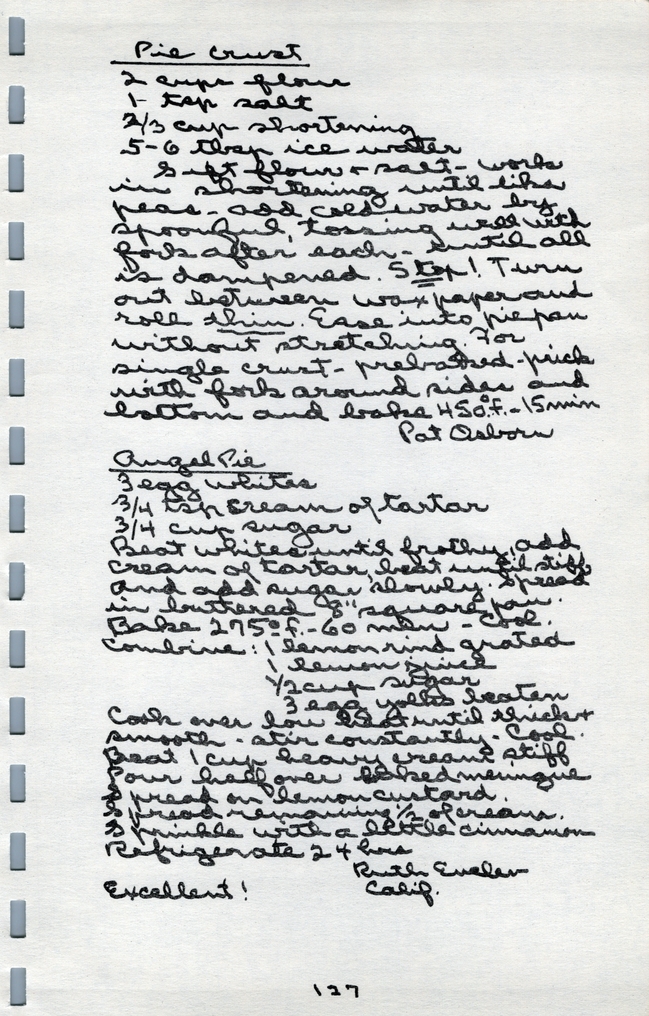 Pie Crust
2 cups flour
1 tsp salt
2/3 cup shortening
5-6 tbsp ice water
Sift flour + salt - work
in shortening until like
peas - add cold water by
spoonful, tossing well with
fork after each - until all
is dampened. Stop! Turn
out between wax paper and
roll thin. Ease into pie pan
without stretching. For
single crust - prebaked - prick
with fork around sides and
bottom and bake 450° f. - 15 min
Pat Osborn
Angel Pie
3 egg whites
3/4 tsp cream of tartar
3/4 cup sugar
Beat whites until frothy, add
cream of tartar, beat until stiff
and add sugar slowly. Spread
in buttered 8" square pan.
Bake 275° f. - 60 min - Cool.
Combine: 1 lemon rind grated
1 lemon juice
1/2 cup sugar
3 egg yolks beaten
Cook over low heat until thick +
smooth - stir constantly - Cool.
Beat 1 cup heavy cream stiff
Pour half over baked meringue
Spread on lemon custard.
Spread remaining 1/2 of cream.
Sprinkle with a little cinnamon
Refrigerate 24 hrs
Ruth
Excellent! Calif.
127